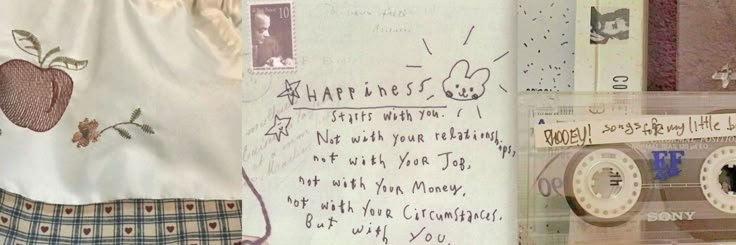 10
HAPPINESS
Starts with you.
Not with your relationships,
not with your Job,
not with your Money,
not with your Circumstances.
But with you.
CO
A
PHOOEY! songs for my little b
EF
90
SONY